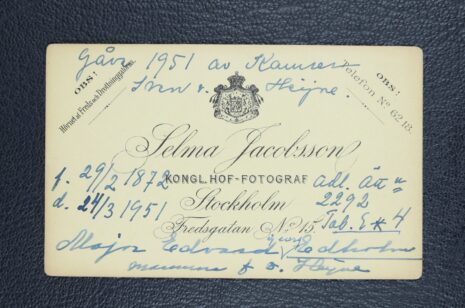 Gåva 1951 av Kamrer
Sven v. Heijne.
OBS!
Hörnet af Freds och Drottninggatan.
OBS!
Telefon No 62.18.
Selma Jacobsson
KONGL. HOF-FOTOGRAF
Stockholm
Fredsgatan No 15.
f. 29/2 1872
d. 24/3 1951
adl. ätt n
2292
Tab. E * 4
Major Edvard Edholm
f v. Heijne